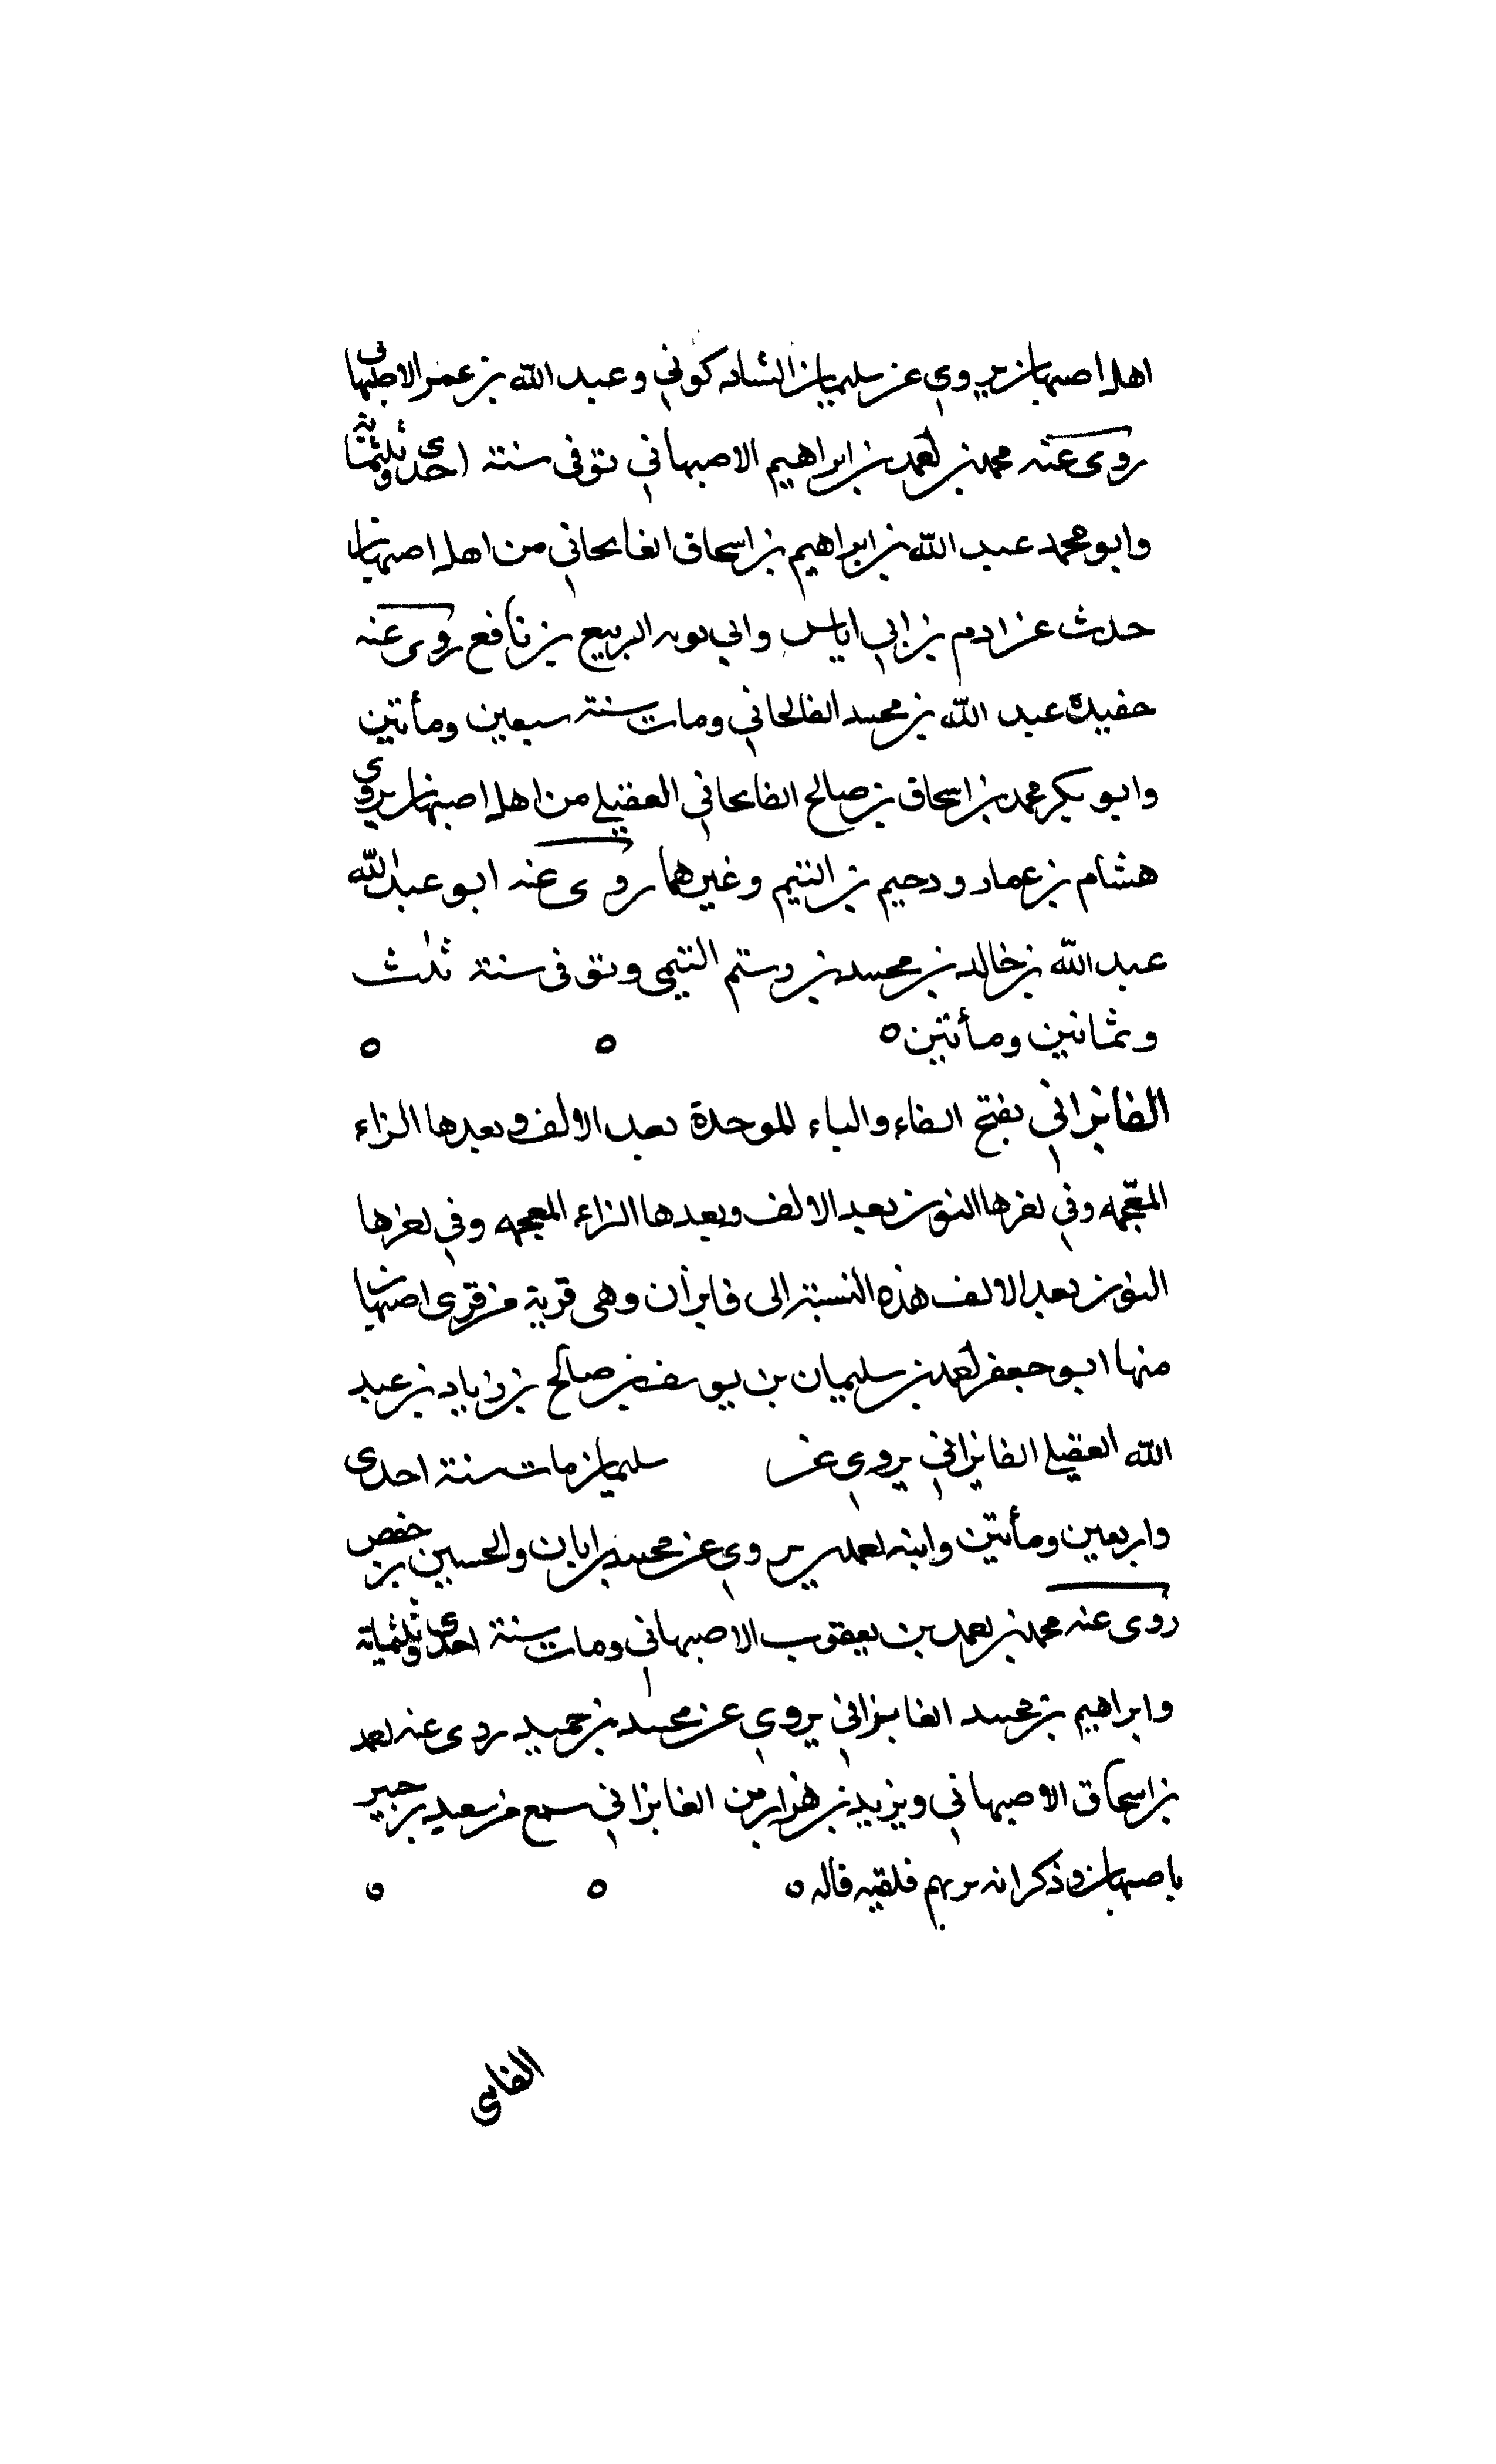 اهل اصبهان يروي عن سليمان الشاذكوني وعبد الله بن عمر الاصبهاني
روى عنه محمد بن احمد بن ابراهيم الاصبهاني توفى سنة احدى وثلثمائة
وابو محمد عبد الله بن ابراهيم بن اسحاق الفابجاني من اهل اصبهان
حدث عن ادم بن ابي اياس وابي توبه الربيع بن نافع روى عنه
حفيده عبد الله بن محمد الفابجاني ومات سنة سبعين ومأتين
وابو بكر محمد بن اسحاق بن صالح الفابجاني العقيلي من اهل اصبهان يروي
هشام بن عمار ودحيم بن التيم وغيرهما روى عنه ابو عبد الله
عبد الله بن خالد بن محمد بن رستم التيمى وتوفى سنة ثلث
وثمانين ومأتين ه ه ه
الفابزاني بفتح الفاء والباء الموحدة بعد الالف وبعدها الزاء
المعجمه وفي اخرها النون بعد الالف وبعدها الزاء المعجمه وفي اخرها
النون بعد الالف هذه النسبة الى فابزان وهى قرية من قرى اصبهان
منها ابو جعفر احمد بن سليمان بن يوسف بن صالح بن زياد بن عبد
الله العقيلي الفابزاني يروي عن سليمان مات سنة احدى
واربعين ومأتين وابنه احمد يروي عن محمد بن ابان والحسين بن حفص
روى عنه محمد بن احمد بن يعقوب الاصبهاني ومات سنة احدى وثلثماية
وابراهيم بن محمد الفابزاني يروي عن محمد بن حميد روى عنه احمد
بن اسحاق الاصبهاني ويزيد بن هزارمن الفابزاني سمع من سعيد بن جبير
باصبهان وذكر انه بهم فلقيه قاله ه ه ه
الفابى